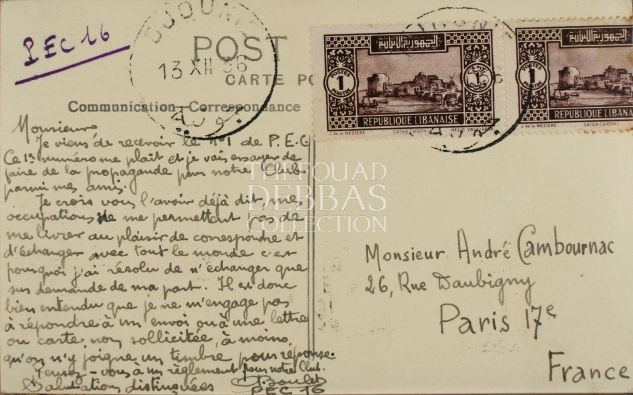 PEC 16
13 XII 36
POST
CARTE PO
Communication-Correspondance
Monsieur,
Je viens de recevoir le N°1 de P.E.C
Ce 1er numéro me plait et je vais essayer de
faire de la propagande pour notre Club
parmi mes amis.
Je crois vous l'avoir déjà dit, mes
occupations ne me permettent pas de
me livrer au plaisir de correspondre et
d'échanger avec tout le monde c'est
pourquoi j'ai résolu de n'échanger que
sur demande de ma part. Il est donc
bien entendu que je ne m'engage pas
à répondre à un envoi ou à une lettre
ou carte, non sollicitée, à moins,
qu'on n'y joigne un timbre pour réponse.
Pensez-vous à un règlement pour notre Club.
Salutations distinguées
PEC 16
الجمهورية اللبنانية
1
1
REPUBLIQUE LIBANAISE
الجمهورية اللبنانية
1
REPUBLIQUE LIBANAISE
THE FOUAD
DEBBAS
COLLECTION
Monsieur André Cambournac
26, Rue Daubigny
Paris 17e
France